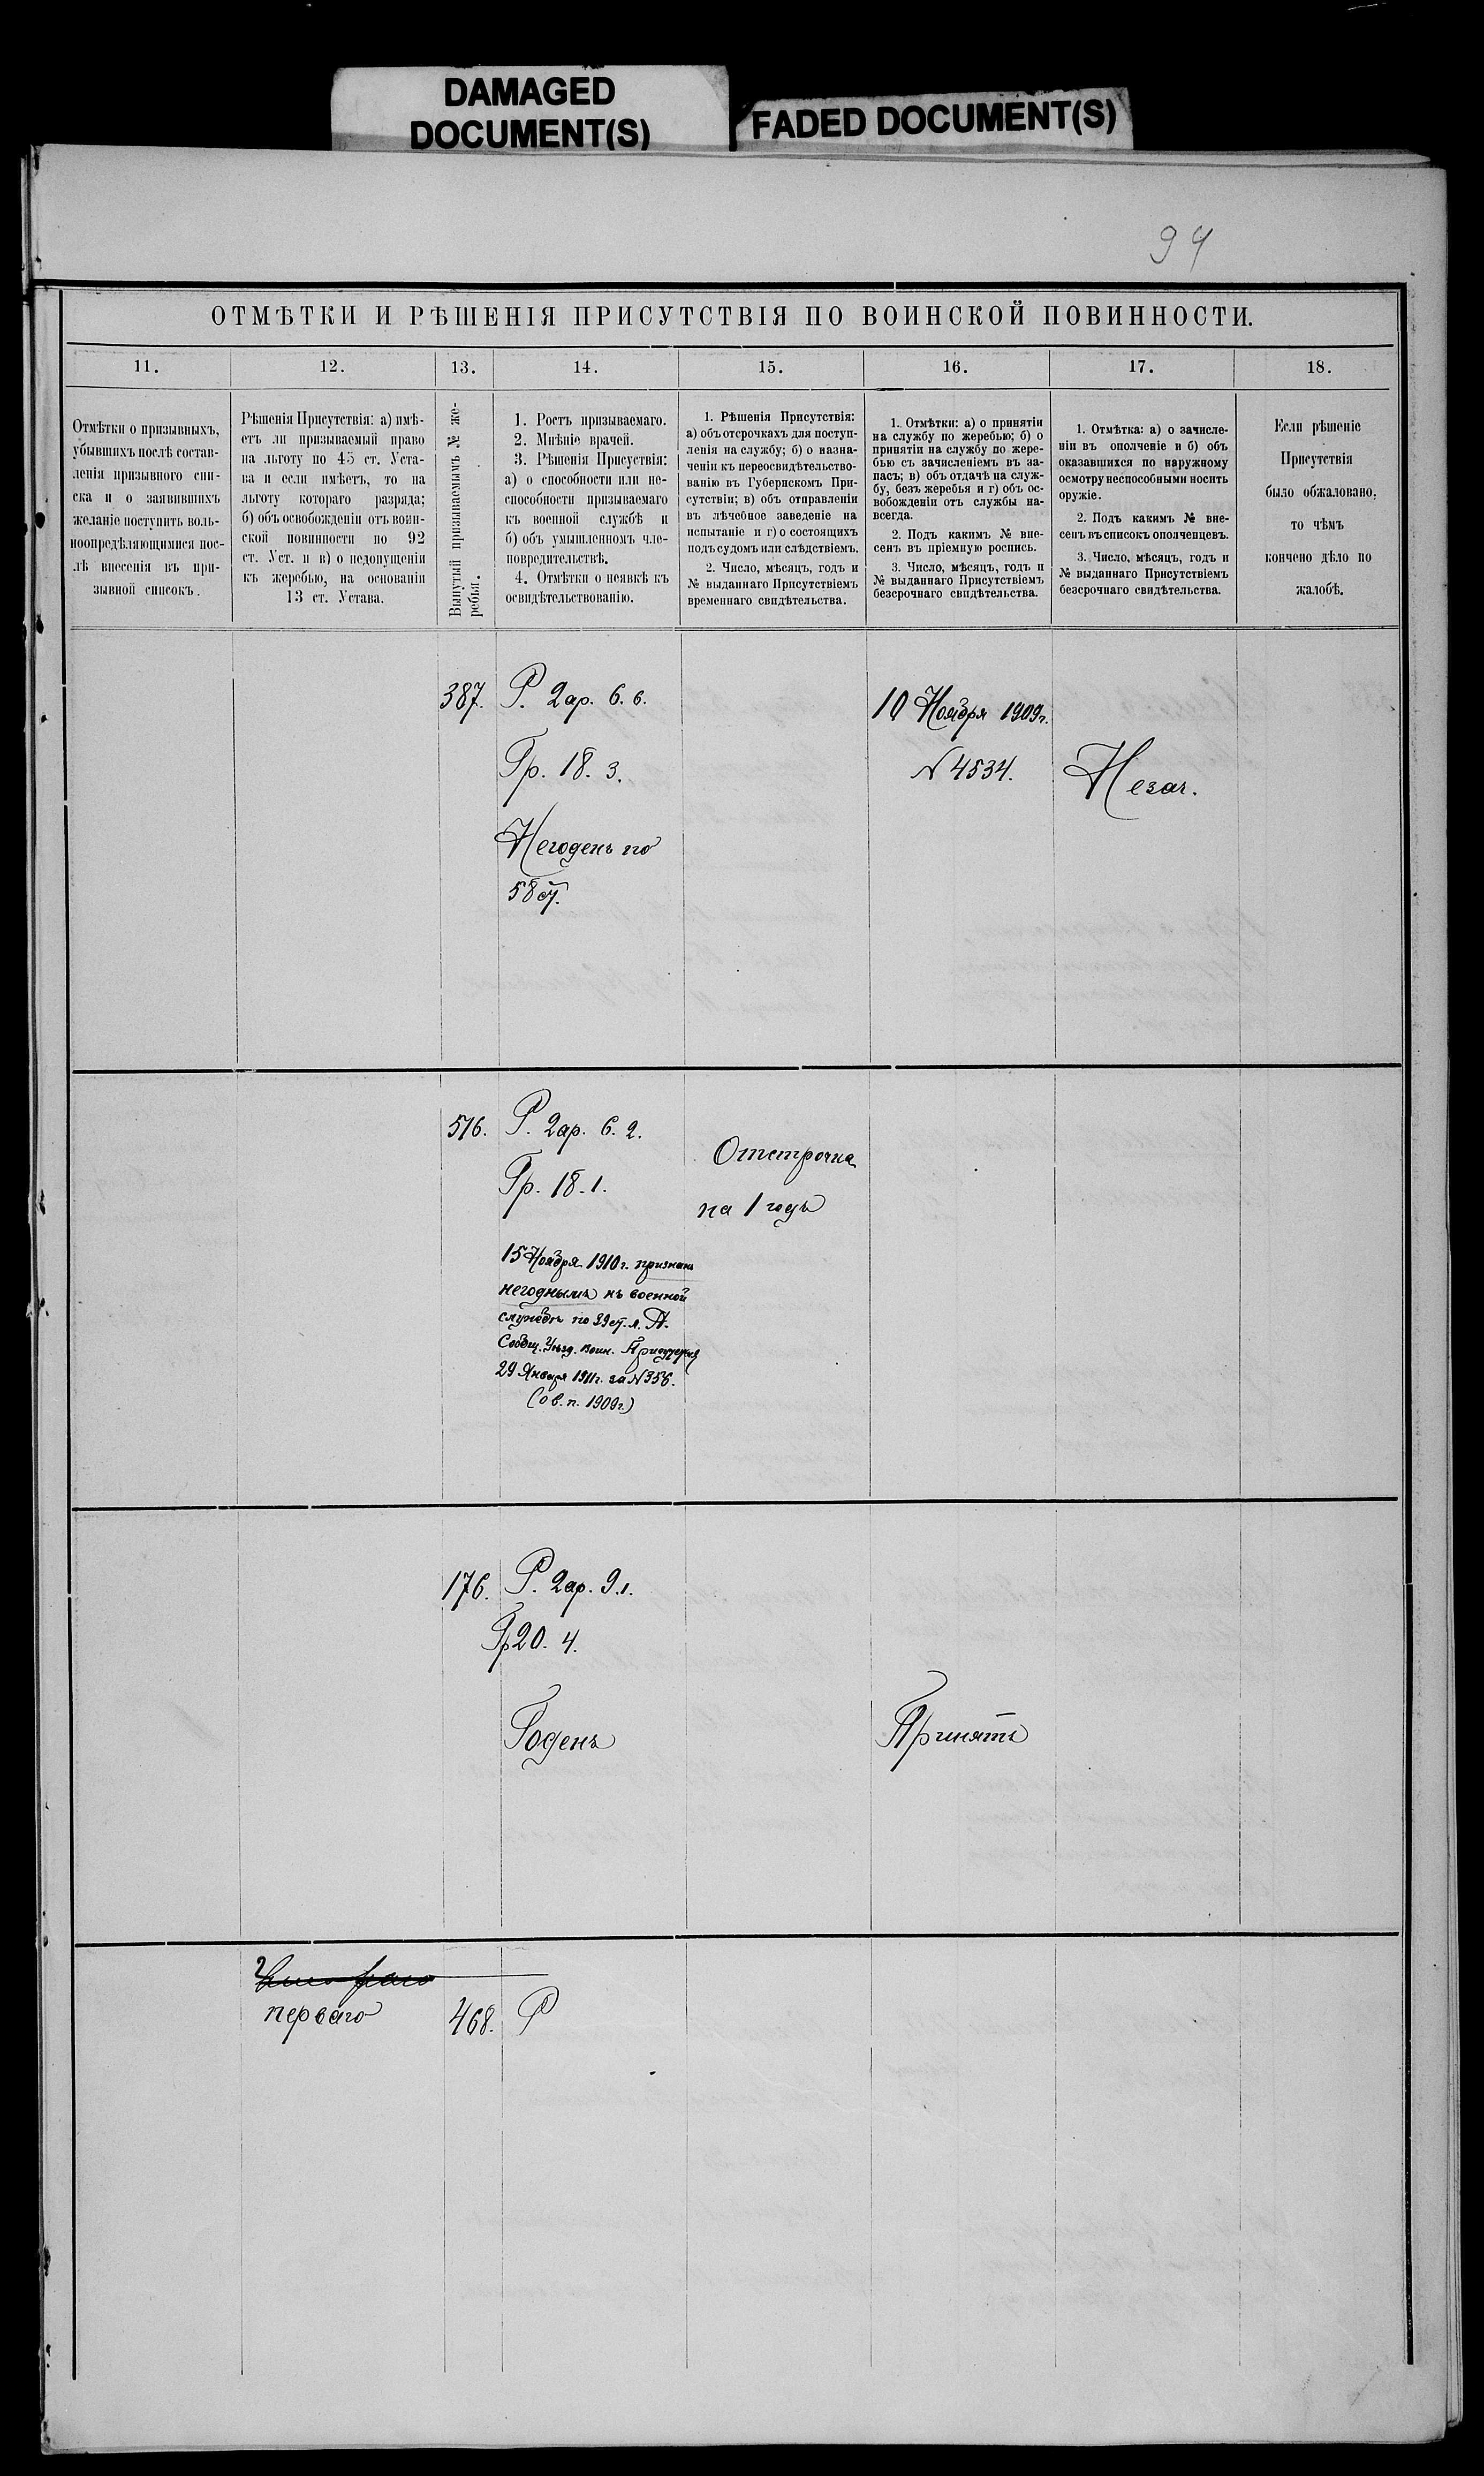 DAMAGED
DOCUMENT(S)
FADED DOCUMENT(S)
94
ОТМѢТКИ И РѢШЕНІЯ ПРИСУТСТВІЯ ПО ВОИНСКОЙ ПОВИННОСТИ.
11.
12.
13.
14.
15.
16.
17.
18.
Отмѣтки о призывныхъ,
убывшихъ послѣ состав-
ленія призывного спи-
ска и о заявившихъ
желаніе поступить воль-
ноопредѣляющимися пос-
лѣ внесенія въ при-
зывной списокъ.
Рѣшенія Присутствія: а) имѣ-
етъ ли призываемый право
на льготу по 45 ст. Уста-
ва и если имѣетъ, то на
льготу котораго разряда;
б) объ освобожденіи отъ воин-
ской повинности по 92
ст. Уст. и в) о недопущеніи
къ жеребью, на основаніи
13 ст. Устава.
Вынутый призываемымъ № же-
ребья.
1. Ростъ призываемаго.
2. Мнѣніе врачей.
3. Рѣшенія Присуствія:
а) о способности или не-
способности призываемаго
къ военной службѣ и
б) объ умышленномъ чле-
новредительствѣ.
4. Отмѣтки о неявкѣ къ
освидѣтельствованію.
1. Рѣшенія Присутствія:
а) объ отсрочкахъ для поступ-
ленія на службу; б) о назна-
ченіи къ переосвидѣтельство-
ванію въ Губернскомъ При-
сутствіи; в) объ отправленіи
въ лѣчебное заведеніе на
испытаніе и г) о состоящихъ
подъ судомъ или слѣдствіемъ.
2. Число, мѣсяцъ, годъ и
№ выданнаго Присутствіемъ
временнаго свидѣтельства.
1. Отмѣтки: а) о принятіи
на службу по жеребью; б) о
принятіи на службу по жере-
бью съ зачисленіемъ въ за-
пасъ; в) объ отдачѣ на служ-
бу, безъ жеребья и г) объ ос-
вобожденіи отъ службы на-
всегда.
2. Подъ какимъ № вне-
сенъ въ пріемную роспись.
3. Число, мѣсяцъ, годъ и
№ выданнаго Присутствіемъ
безсрочнаго свидѣтельства.
1. Отмѣтка: а) о зачисле-
ніи въ ополченіе и б) объ
оказавшихся по наружному
осмотру неспособными носить
оружіе.
2. Подъ какимъ № вне-
сенъ въ списокъ ополченцевъ.
3. Число, мѣсяцъ, годъ и
№ выданнаго Присутствіемъ
безсрочнаго свидѣтельства.
Если рѣшеніе
Присутствія
было обжаловано,
то чѣмъ
кончено дѣло по
жалобѣ.
387.
Р. 2ар. 6. 6.
Гр. 18. 3.
Негоденъ по
58 ст.
10 Ноября 1909г.
N 4534.
Незач.
516.
Р. 2ар. 6. 2.
Гр. 18. 1.
15 Ноября 1910г. признанъ
негоднымъ къ военной
службѣ по 29 ст. л. А.
Сообщ. Уѣзд. Воин. Присутствія
29 Января 1911г. за N 356.
(о в. п. 1909г.)
Отстрочка
на 1 годъ
176.
Р. 2ар. 9. 1.
Гр 20. 4.
Годенъ
Принятъ
перваго
468.
Р